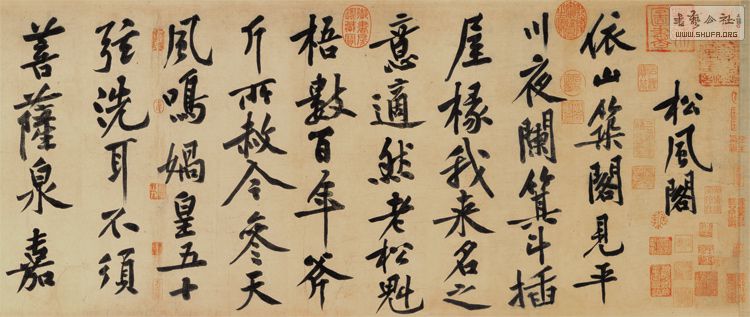 松風閣
依山築閣見平
川夜闌箕斗插
屋椽我来名之
意適然老松魁
梧數百年斧
斤所赦令參天
風鳴媧皇五十
弦洗耳不須
菩薩泉嘉
書藝公社
www.SHUFA.ORG